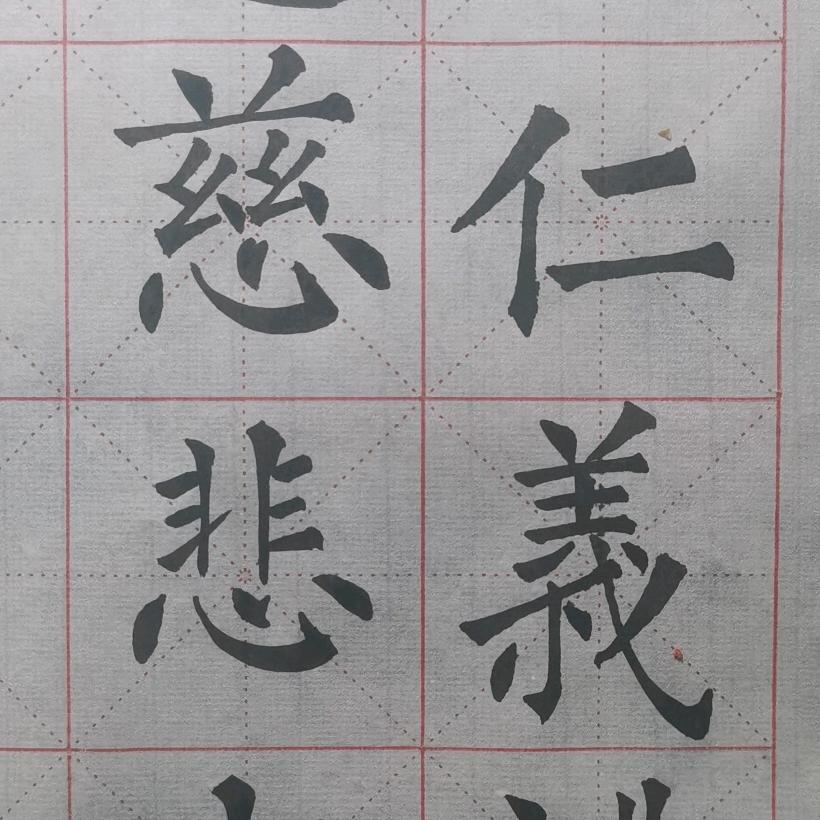 仁義
慈悲